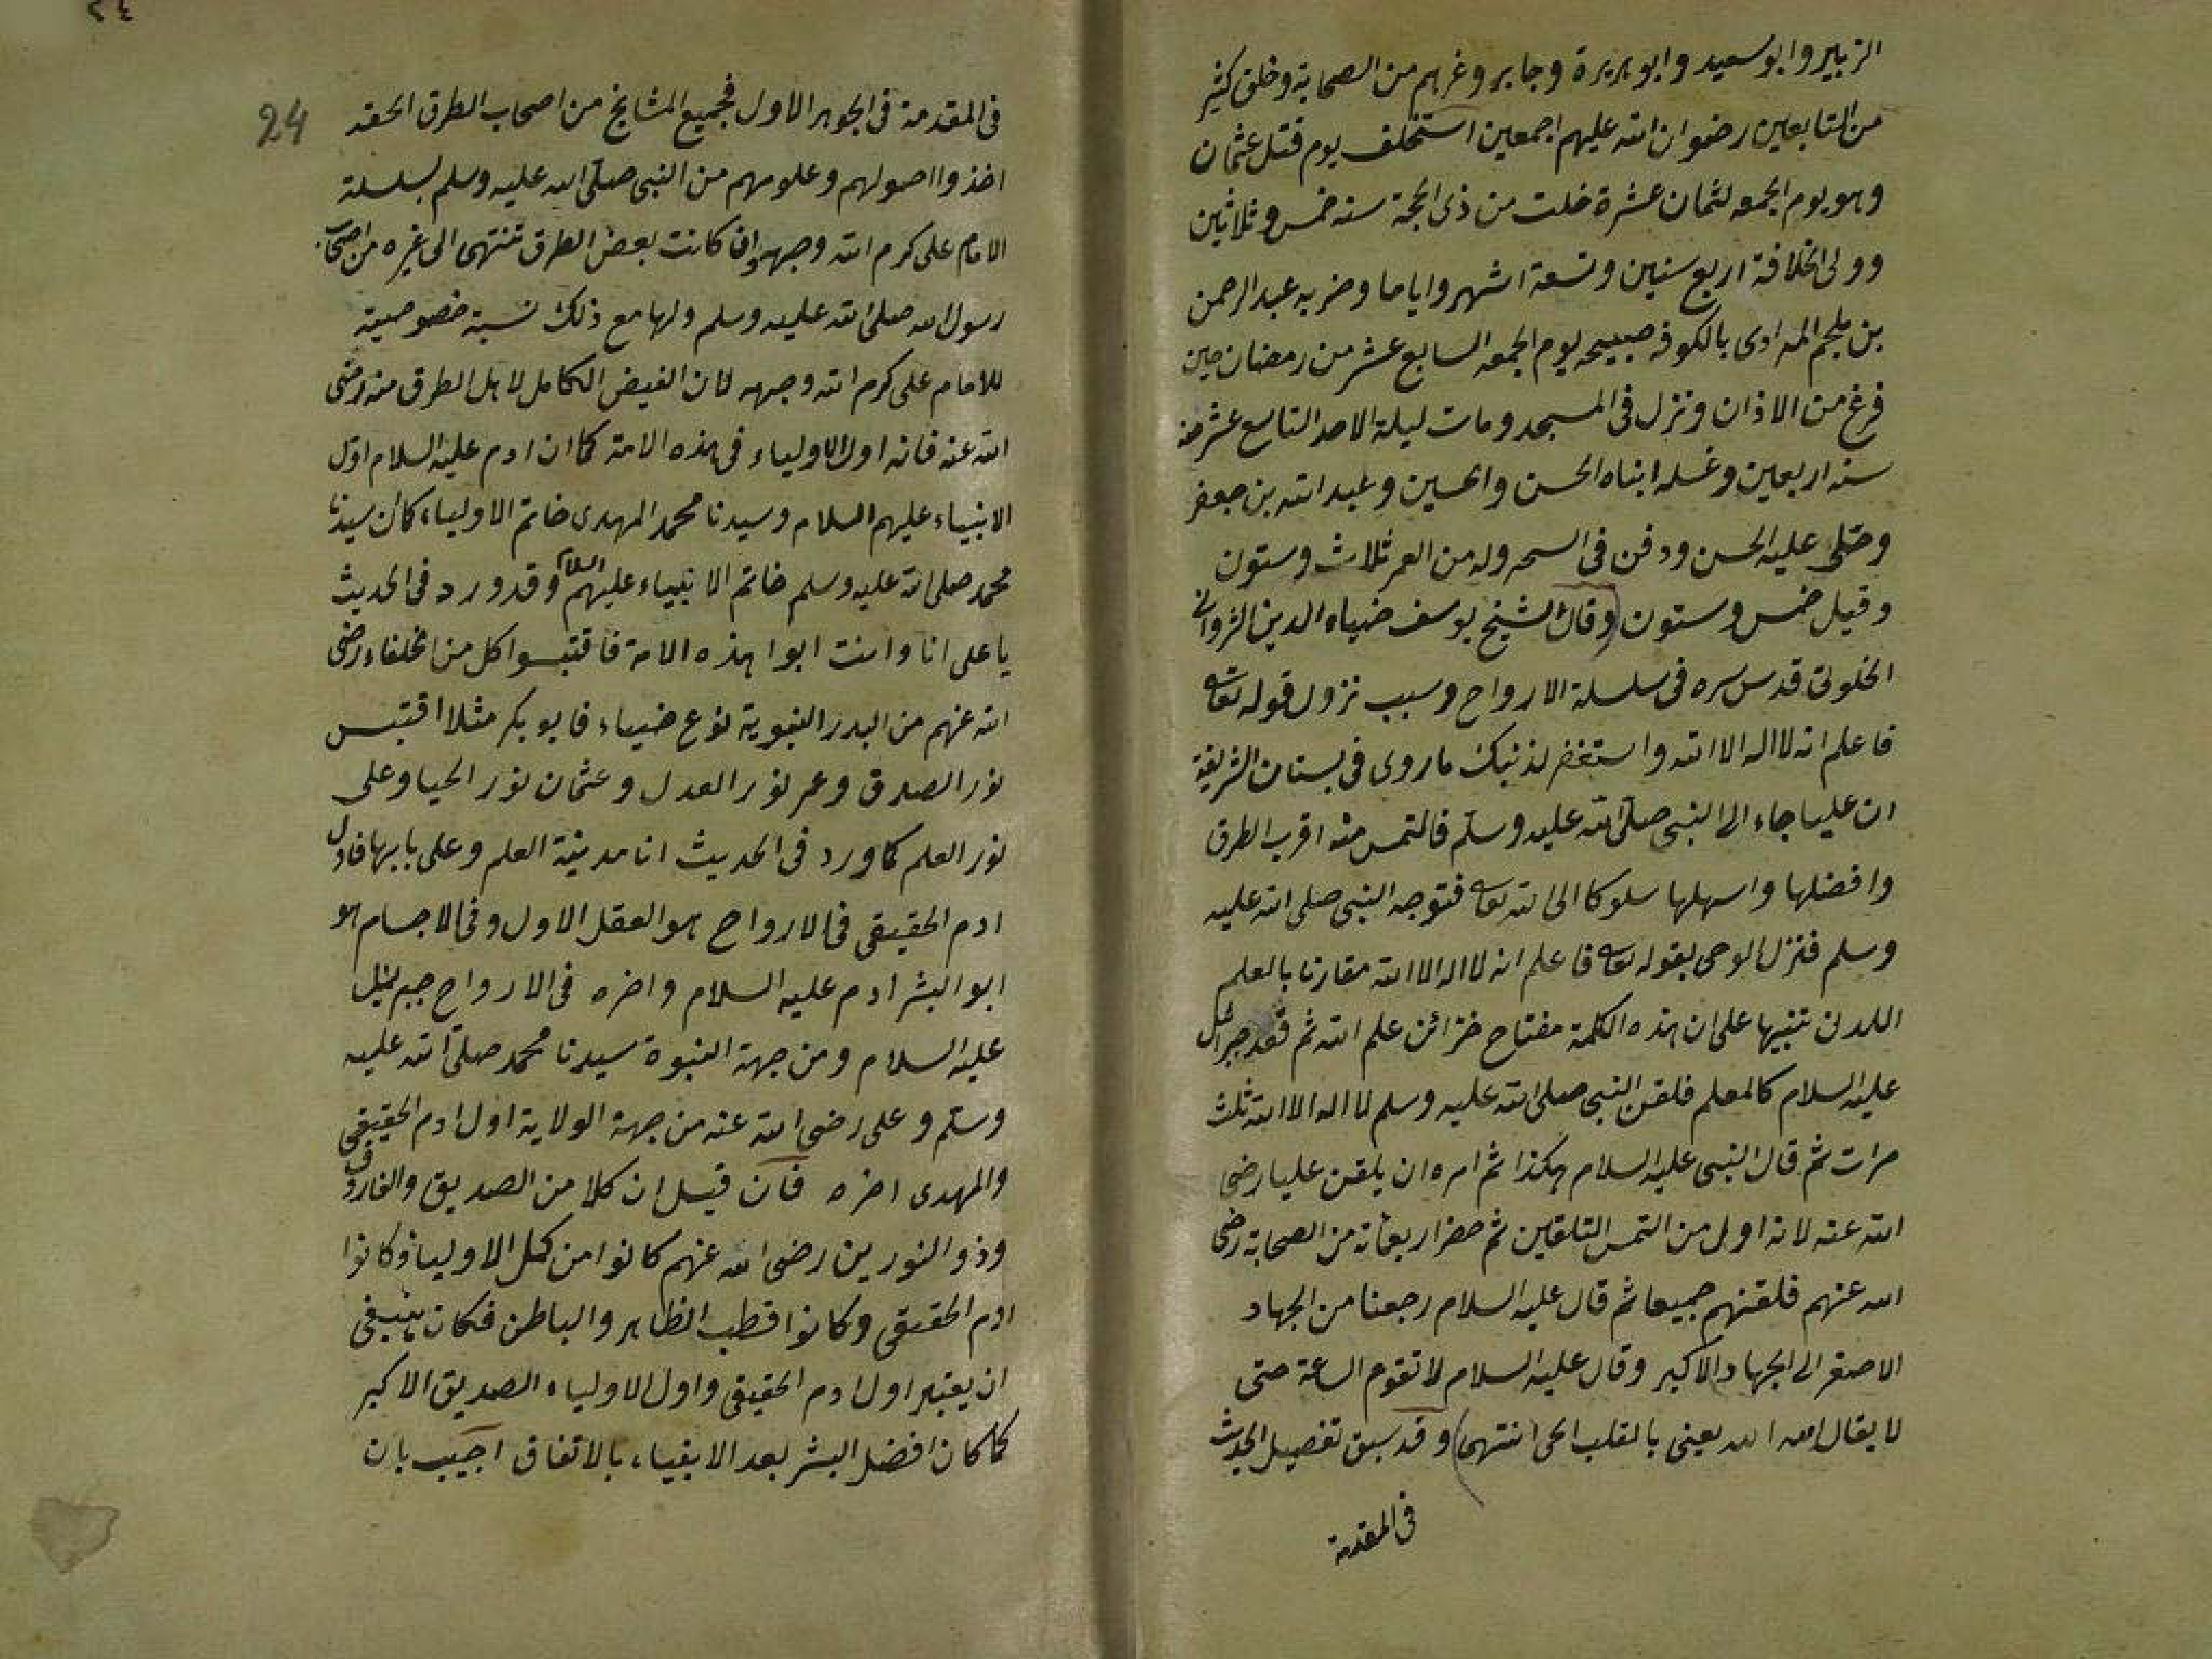 الزبير وابو سعيد وابو هريرة وجابر وغيرهم من الصحابة وخلق كثير
من التابعين رضوان الله عليهم اجمعين استخلف يوم قتل عثمان
وهو يوم الجمعه لثمان عشرة خلت من ذى الحجة سنه خمس وثلاثين
وولى الخلافة اربع سنين وتسعة اشهر واياما وضربه عبد الرحمن
بن ملجم المرادى بالكوفه صبيحه يوم الجمعه السابع عشر من رمضان حين
فرغ من الاذان ونزل فى المسجد ومات ليلة الاحد التاسع عشر منه
سنه اربعين وغسله ابناه الحسن والحسين وعبد الله بن جعفر
وصلى عليه الحسن ودفن فى السحر وله من العمر ثلاث وستون
وقيل خمس وستون (وقال الشيخ يوسف ضياء الدين الشروانى
الخلوتى قدس سره فى سلسلة الارواح وسبب نزول قوله تعالى
فاعلم انه لا اله الا الله واستغفر لذنبك ما روى فى بستان الشريعة
ان عليا جاء الى النبى صلى الله عليه وسلم فالتمس منه اقرب الطرق
وافضلها واسهلها سلوكا الى الله تعالى فتوجه النبى صلى الله عليه
وسلم فنزل الوحى بقوله تعالى فاعلم انه لا اله الا الله مقارنا بالعلم
اللدن تنبيها على ان هذه الكلمة مفتاح خزائن علم الله ثم قعد جبرائل
عليه السلام كالمعلم فلقن النبى صلى الله عليه وسلم لا اله الا الله ثلث
مرات ثم قال النبى عليه السلام هكذا ثم امره ان يلقن عليا رضى
الله عنه لانه اول من التمس التلقين ثم حضر اربعمائة من الصحابة رضى
الله عنهم فلقنهم جميعا ثم قال عليه السلام رجعنا من الجهاد
الاصغر الى الجهاد الاكبر وقال عليه السلام لا تقوم الساعة حتى
لا يقال الله الله يعنى بالقلب الحى انتهى) وقد سبق تفصيل الحديث
فى المقدمة
24
فى المقدمة فى الجوهر الاول فجميع المشايخ من اصحاب الطرق الحقه
اخذوا اصولهم وعلومهم من النبى صلى الله عليه وسلم بسلسلة
الامام على كرم الله وجهه وان كانت بعض الطرق تنتهى الى غيره من اصحاب
رسول الله صلى الله عليه وسلم ولها مع ذلك نسبة خصوصية
للامام على كرم الله وجهه لان الفيض الكامل لاهل الطرق منه رضى
الله عنه فانه اول الاولياء فى هذه الامة كما ان ادم عليه السلام اول
الانبياء عليهم السلام وسيدنا محمد المهدى خاتم الاولياء كما ان سيدنا
محمد صلى الله عليه وسلم خاتم الانبياء عليهم السلام وقد ورد فى الحديث
يا على انا وانت ابوا هذه الامة فاقتبسوا كل من الخلفاء رضى
الله عنهم من البدر النبوية نوع ضياء فابو بكر مثلا اقتبس
نور الصدق وعمر نور العدل وعثمان نور الحيا وعلى
نور العلم كما ورد فى الحديث انا مدينة العلم وعلى بابها فاول
ادم الحقيقى فى الارواح هو العقل الاول وفى الاجسام هو
ابو البشر ادم عليه السلام واخره فى الارواح
عليه السلام ومن جهة النبوة سيدنا محمد صلى الله عليه
وسلم وعلى رضى الله عنه من جهة الولاية اول ادم الحقيقى
والمهدى اخره فان قيل ان كلا من الصديق والفاروق
وذو النورين رضى الله عنهم كانوا من كمل الاولياء وكانوا
ادم الحقيقى وكانوا قطب الظاهر والباطن فكان ينبغى
ان يعتبر اول ادم الحقيقى واول الاولياء الصديق الاكبر
كما كان افضل البشر بعد الانبياء بالاتفاق اجيب بان